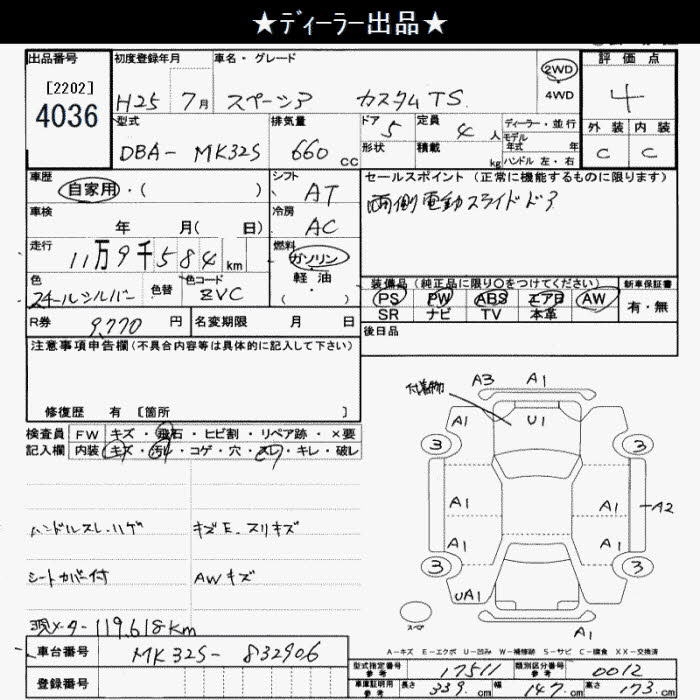 ★ディーラー出品★
出品番号
[2202]
4036
初度登録年月
H25 7月
車名・グレード
スペーシア カスタムTS
2WD
4WD
評価点
4
外装 内装
C C
型式
DBA- MK32S
排気量
660 cc
ドア 5
形状
定員 4 人
積載 kg
ディーラー・並行
モデル
年式 年
ハンドル 左・右
車歴
自家用・( )
シフト
AT
セールスポイント (正常に機能するものに限ります)
両側電動スライドドア
車検
年 月( 日)
冷房
AC
走行
11万9千584km
燃料
ガソリン
軽油
( )
色
スチールシルバー
色替
色コード
ZVC
装備品(純正品に限り○をつけてください)
新車保証書
PS PW ABS エアB AW
有・無
SR ナビ TV 本革
R券 9,770円
名変期限 月 日
後日品
注意事項申告欄(不具合内容等は具体的に記入して下さい)
修復歴 有 [箇所 ]
検査員
記入欄
FW キズ・飛石・ヒビ割・リペア跡・×要
内装 キズ・汚レ・コゲ・穴・スレ・キレ・破レ
ハンドルスレ・ハゲ
キズE. スリキズ
シートカバー付
AWキズ
現メーター119,618Km
付着物
A3 A1
A1 U1
3 3
A1 A1 A2
A1 A1
3 3
UA1 A1
スペア
A-キズ E-エクボ U-凹み W-補修跡 S-サビ C-腐食 XX-交換済
車台番号
MK32S-832906
登録番号
型式指定番号
参考
17511
類別区分番号
参考
0012
車庫証明用
参考
長さ 339.cm 幅 147.cm 高さ 173.cm